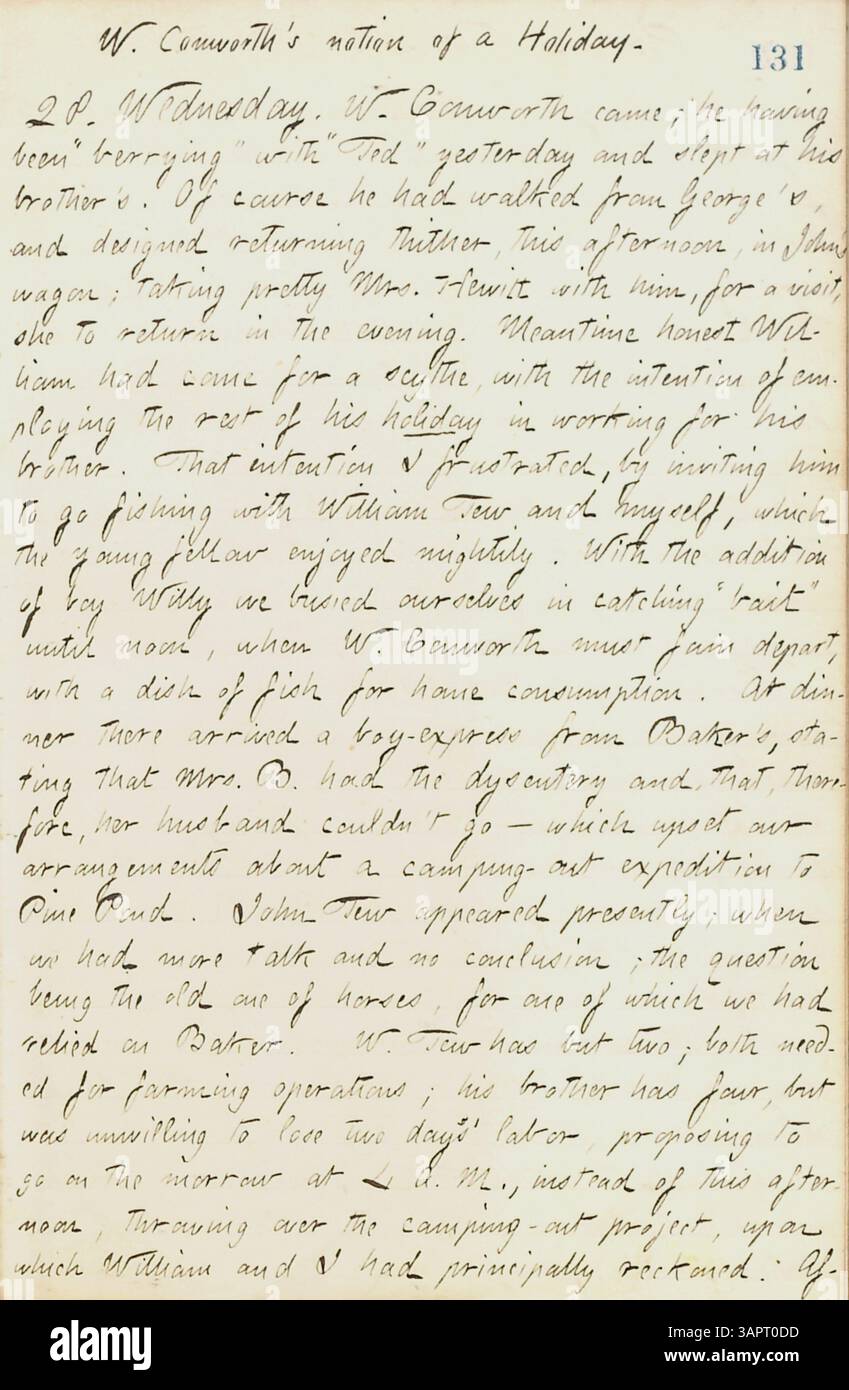 W. Conworth's notion of a Holiday.
131
28. Wednesday. W. Conworth came; he having
been "berrying" with "Ted" yesterday and slept at his
brother's. Of course he had walked from George's,
and designed returning thither, this afternoon, in John's
wagon; taking pretty Mrs. Hewitt with him, for a visit,
she to return in the evening. Meantime honest Wil-
liam had come for a scythe, with the intention of em-
ploying the rest of his holiday in working for his
brother. That intention I frustrated, by inviting him
to go fishing with William Tew and myself, which
the young fellow enjoyed mightily. With the addition
of boy Willy we busied ourselves in catching "bait"
until noon, when W. Conworth must fain depart,
with a dish of fish for home consumption. At din-
ner there arrived a boy-express from Baker's, sta-
ting that Mrs. B. had the dysentery and, that, there-
fore, her husband couldn't go — which upset our
arrangements about a camping-out expedition to
Pine Pond. John Tew appeared presently; when
we had more talk and no conclusion; the question
being the old one of horses, for one of which we had
relied on Baker. W. Tew has but two; both need-
ed for farming operations; his brother has four, but
was unwilling to lose two days' labor, proposing to
go on the morrow at 4 A. M., instead of this after-
noon, throwing over the camping-out project, upon
which William and I had principally reckoned. Af-
alamy
Image ID: 3APT0DD
www.alamy.com